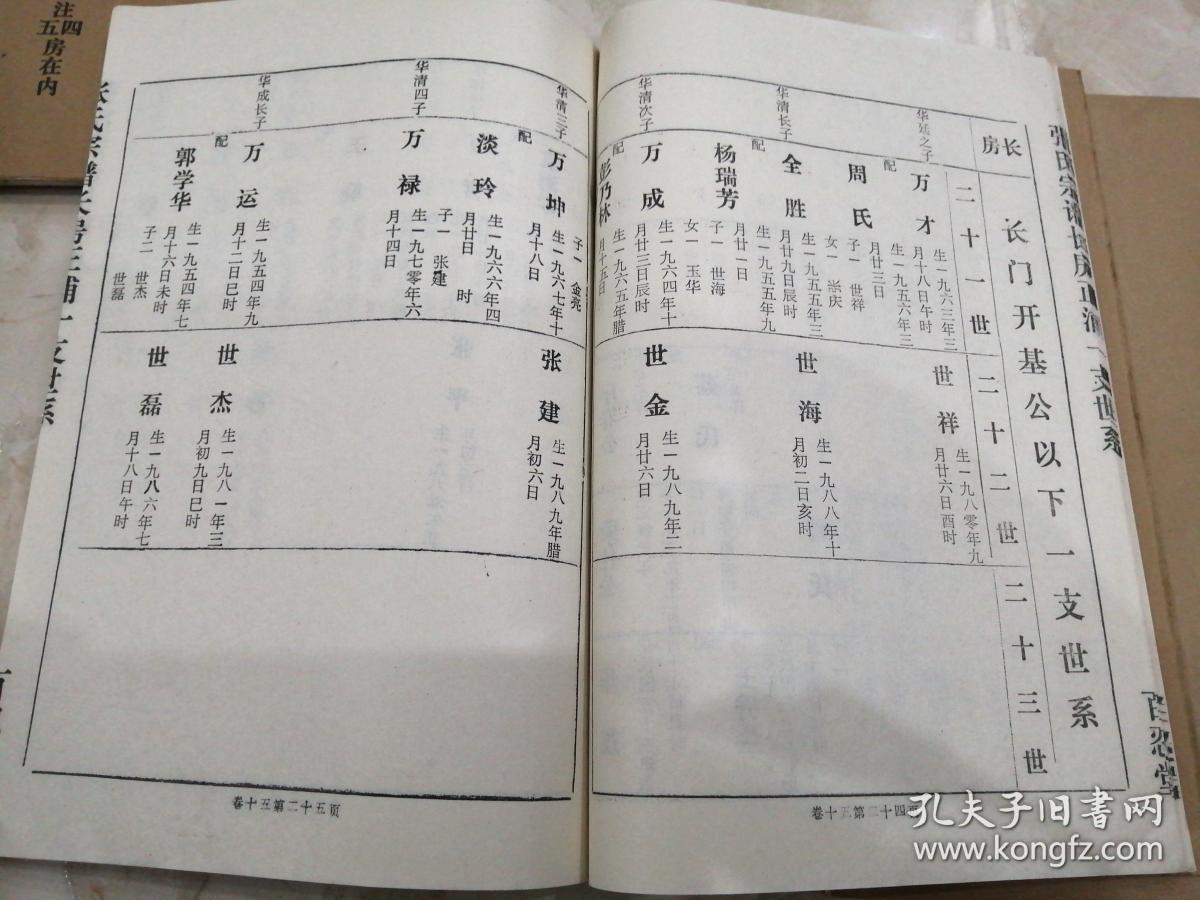 张氏宗谱长房正浦一支世系
百忍堂
长门开基公以下一支世系
长房
二十一世
二十二世
二十三世
华廷之子
万才
生一九六三年三
月十八日午时
配
周氏
生一九五六年三
月廿三日
子一 世祥
女一 崇庆
世祥
生一九八零年九
月廿六日酉时
华清长子
全胜
生一九五五年三
月廿九日辰时
配
杨瑞芳
生一九五五年九
月廿一日
子一 世海
女一 玉华
世海
生一九八八年十
月初二日亥时
华清次子
万成
生一九六四年
月廿三日辰时
配
彭乃林
生一九六五年腊
月十五日
世金
生一九八九年二
月廿六日
卷十五第二十四页
华清三子
万坤
生一九六七年十
月十八日
子一 金亮
配
淡玲
生一九六六年四
月廿日 时
子一 张建
张建
生一九八九年腊
月初六日
华清四子
万禄
生一九七零年六
月十四日
华成长子
万运
生一九五四年九
月十二日巳时
配
郭学华
生一九五四年七
月十六日未时
子二 世杰
世磊
世杰
生一九八一年三
月初九日巳时
世磊
生一九八六年七
月十八日午时
卷十五第二十五页
注四
五房在内
孔夫子旧书网
www.kongfz.com